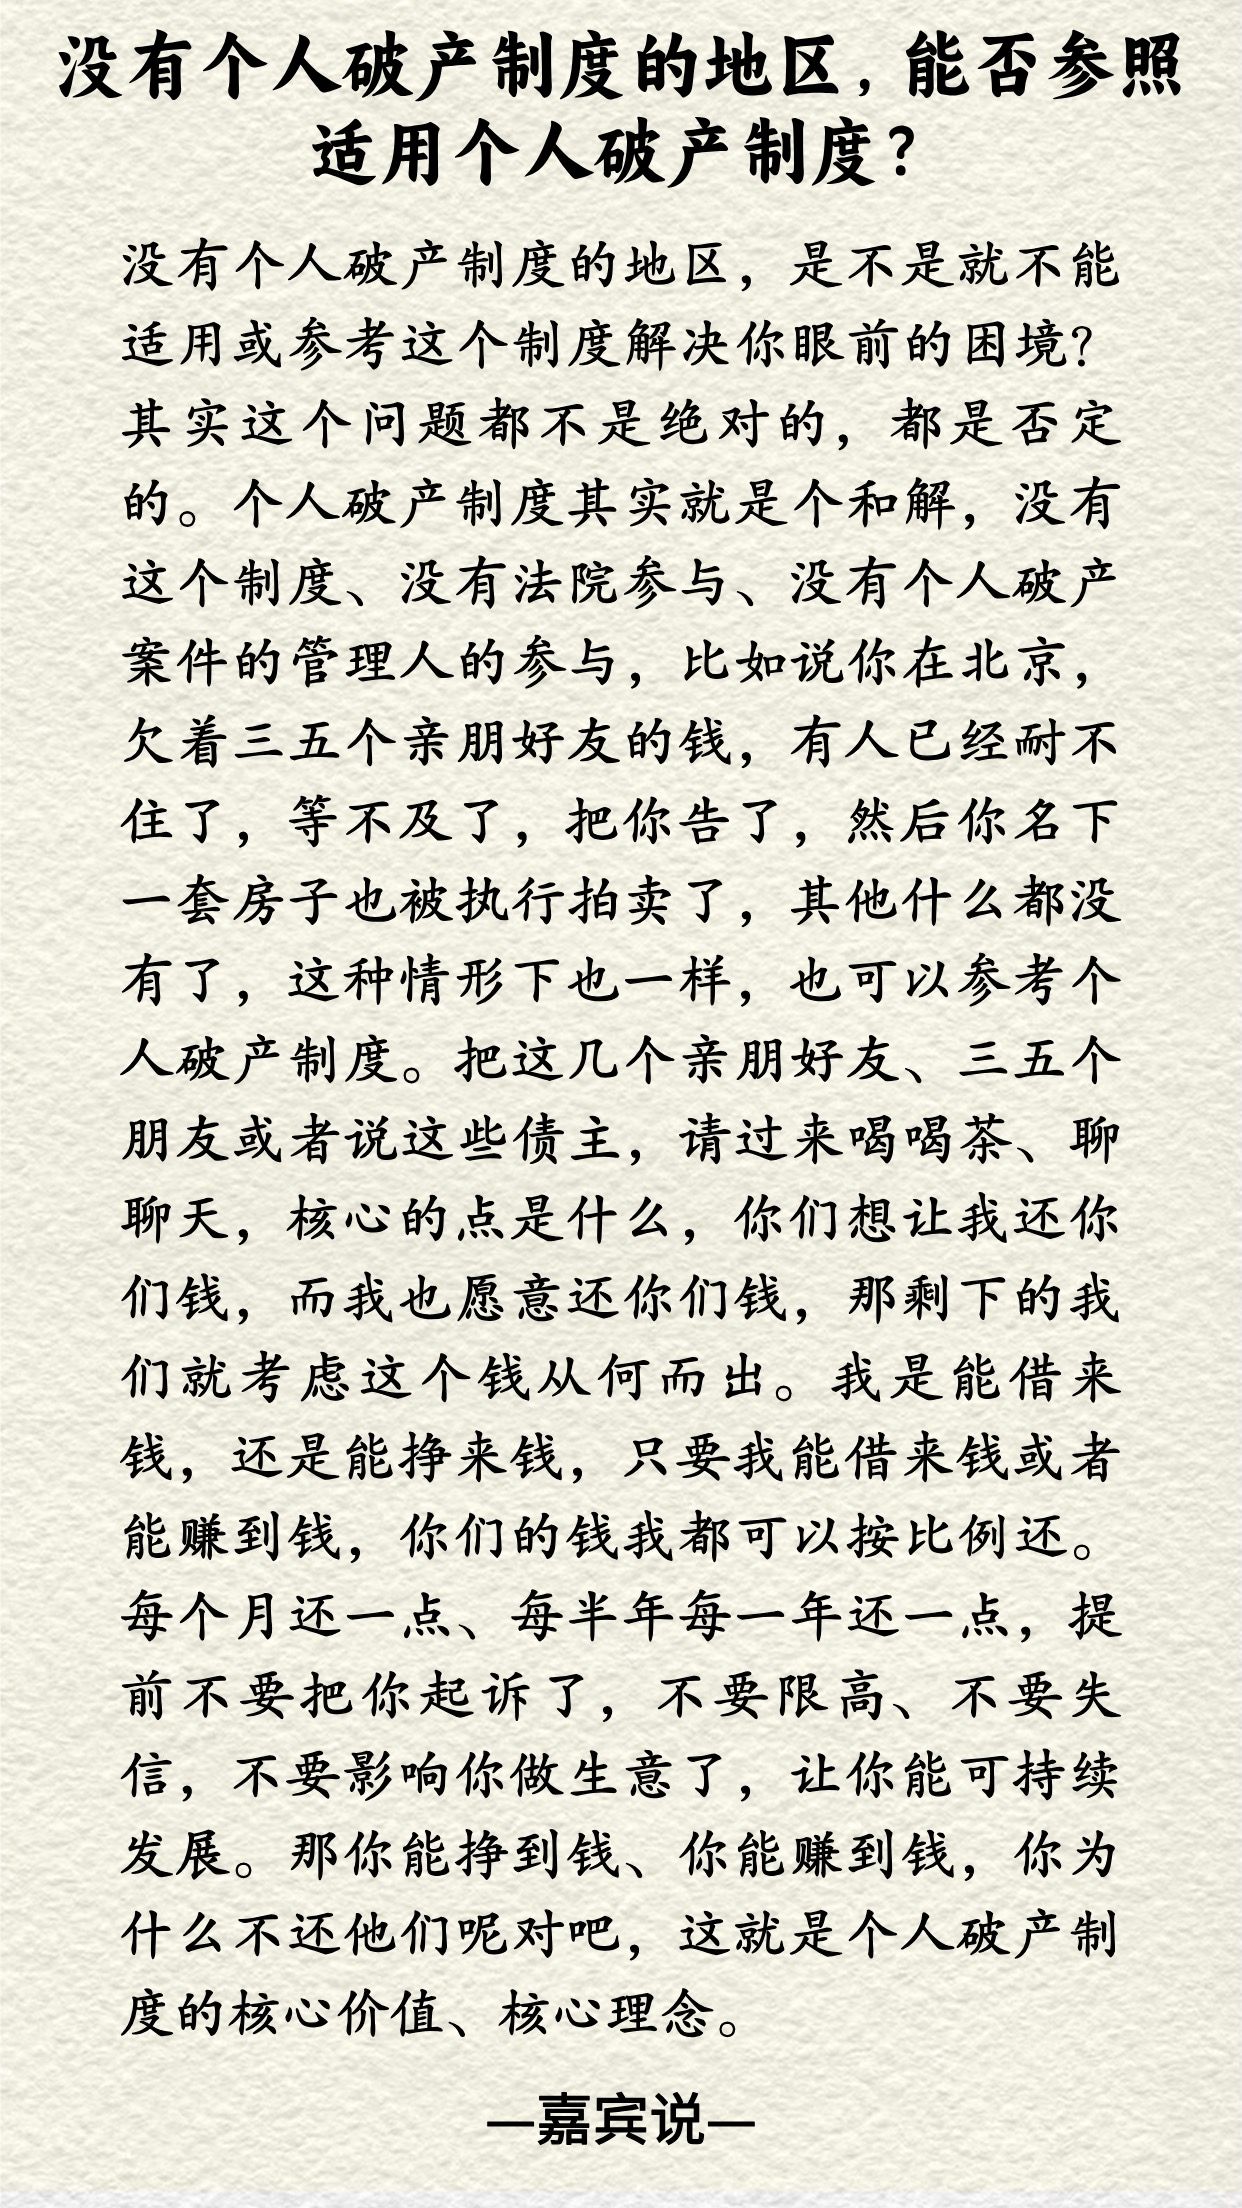 没有个人破产制度的地区，能否参照
适用个人破产制度？
没有个人破产制度的地区，是不是就不能
适用或参考这个制度解决你眼前的困境？
其实这个问题都不是绝对的，都是否定
的。个人破产制度其实就是个和解，没有
这个制度、没有法院参与、没有个人破产
案件的管理人的参与，比如说你在北京，
欠着三五个亲朋好友的钱，有人已经耐不
住了，等不及了，把你告了，然后你名下
一套房子也被执行拍卖了，其他什么都没
有了，这种情形下也一样，也可以参考个
人破产制度。把这几个亲朋好友、三五个
朋友或者说这些债主，请过来喝喝茶、聊
聊天，核心的点是什么，你们想让我还你
们钱，而我也愿意还你们钱，那剩下的我
们就考虑这个钱从何而出。我是能借来
钱，还是能挣来钱，只要我能借来钱或者
能赚到钱，你们的钱我都可以按比例还。
每个月还一点、每半年每一年还一点，提
前不要把你起诉了，不要限高、不要失
信，不要影响你做生意了，让你能可持续
发展。那你能挣到钱、你能赚到钱，你为
什么不还他们呢对吧，这就是个人破产制
度的核心价值、核心理念。
—嘉宾说—